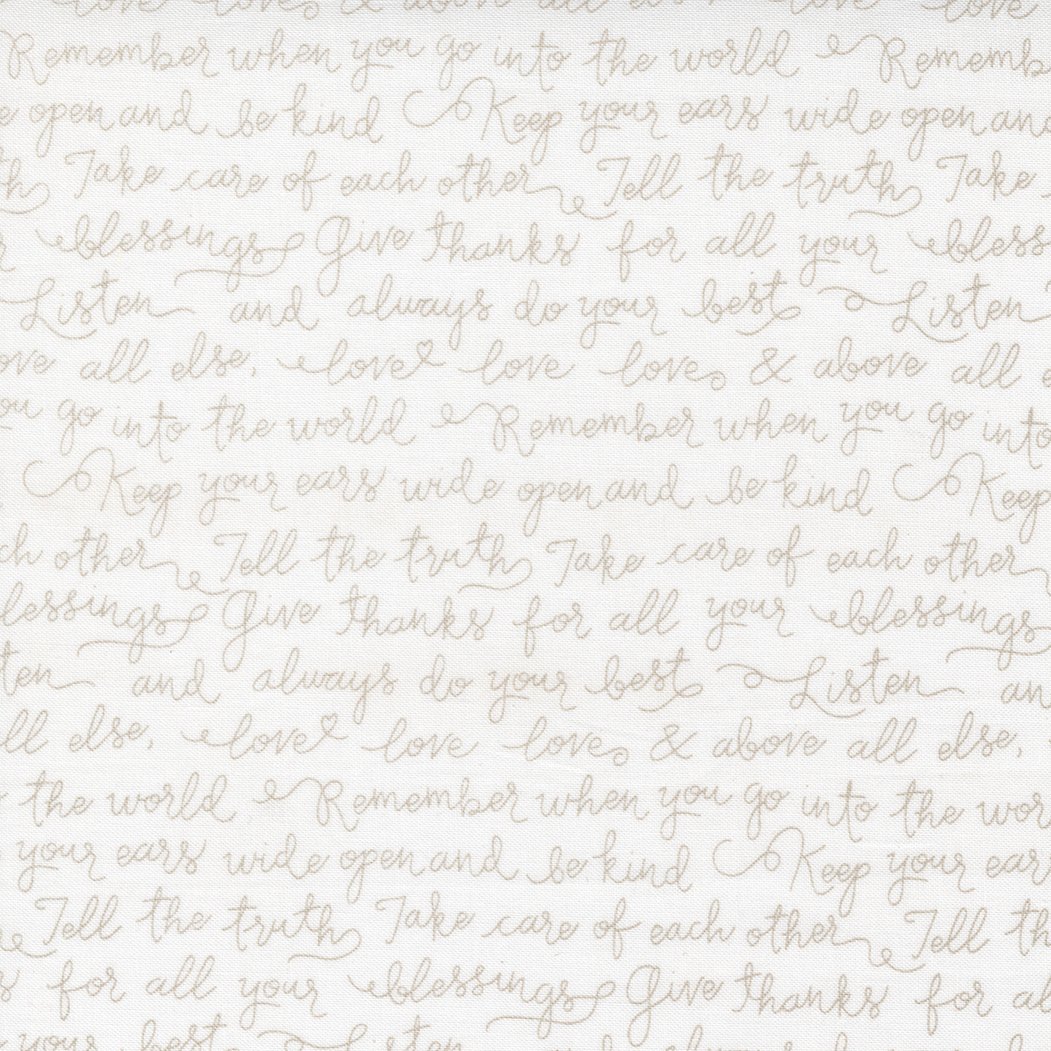 love love & above all else, love love
Remember when you go into the world Rememb
e open and be kind Keep your ears wide open and
th Take care of each other Tell the truth Take
r blessings Give thanks for all your bless
Listen and always do your best Listen
ove all else, love love love & above all e
ou go into the world Remember when you go into
Keep your ears wide open and be kind Keep
ch other Tell the truth Take care of each other
lessings Give thanks for all your blessings
ten and always do your best Listen an
ll else, love love love & above all else,
the world Remember when you go into the wor
your ears wide open and be kind Keep your ear
Tell the truth Take care of each other Tell th
s for all your blessings Give thanks for al
your best Listen and always do